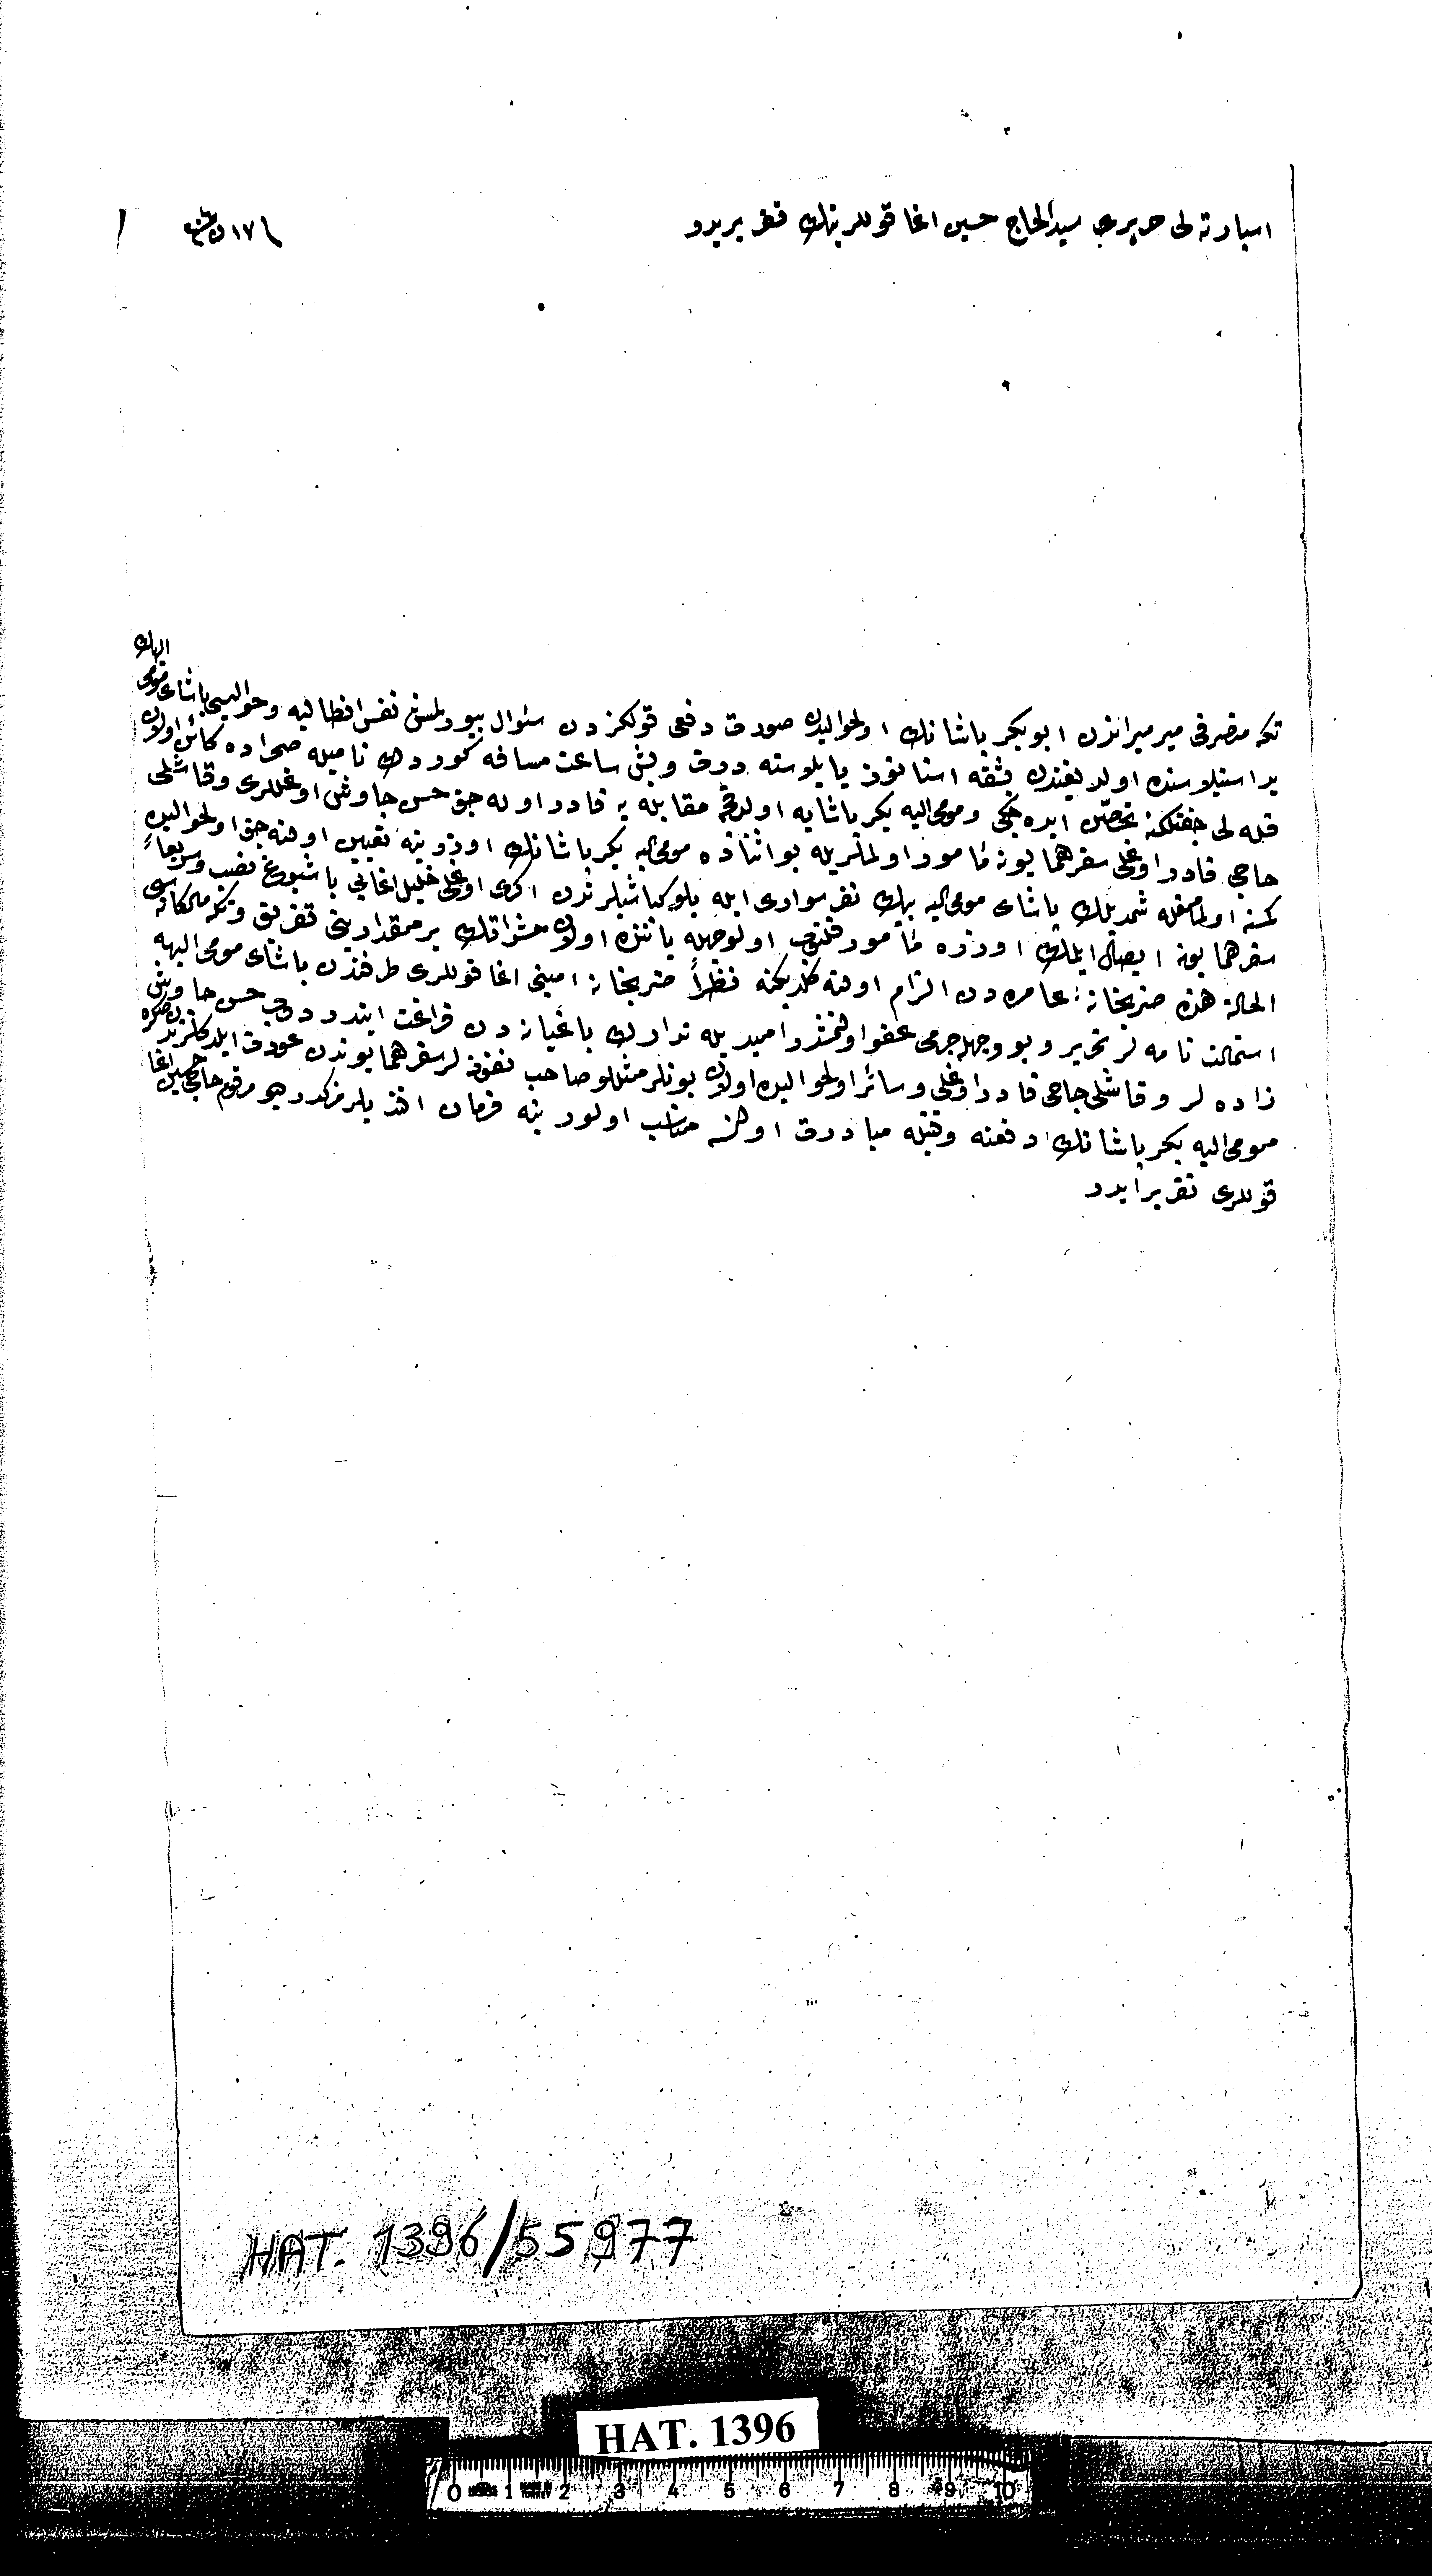 اسپارته لی حریری سید الحاج حسین اغا قوللرینك تقریریدر
١٧ ن
تکه متصرفی میرمیراندن ابو بکر پاشانك اولحوالیدن صورت دفعی قولکزدن سئوال بیورلمش نفس انطالیه وحوالیسی پاشای مومی الیهك
یر استیلوسنده اولدیغندن بشقه استانوز یایلوسنه درت وبش ساعت مسافه نامیله صحراده کائن اولان
قبله لی چفتلکنه تحصن ایده جکی ومومی الیه بکر پاشایه اولدقجه مقابله یه قادر اوله جق حسن چاوش اوغللری وقاشلی
حاجی قادر اوغلی سفر همایونه مأمور اولمالریله بو اثناده مومی الیه بکر پاشانك اوزرینه تعیین اولنه جق اولحوالیده
کمسنه اولمامغله شمدیلك پاشای مومی الیه بیك نفر سواری ایله بلوکباشیلرندن اوغلی خلیل اغایی باشبوغ نصب وسریعاً
سفر همایونه ایصال ایلمك اوزره مأمور قلنوب اولوجهله یاننده اولان حشراتك بر مقدارینی تفریق وتکه ملکانه سی
الحالة هذه ضربخانهٔ عامره دن الزام اولنه کلدیکنه نظراً ضربخانه امینی اغا قوللری طرفندن پاشای مومی الیهه
استمالت نامه لر تحریر وبو وجهله جرمی عفو اولنمشدر امیدیله تدارك باغیانه دن فراغت ایتدیردوب حسن چاوش
زاده لر وقاشلی حاجی قادر اوغلی وسائر اولحوالیده اولان بونلر مثللو صاحب نفوذلر سفر همایوندن عودت ایلدکلرندن صکره
مومی الیه بکر پاشانك دفعنه وقتیله مبادرت اولنسه مناسب اولور ینه فرمان افندیلرمزکدر دیو مرقوم حاجی حسین اغا
قوللری تقریر ایدر
HAT. 1396/55977
HAT. 1396
0 1 2 3 4 5 6 7 8 9 10